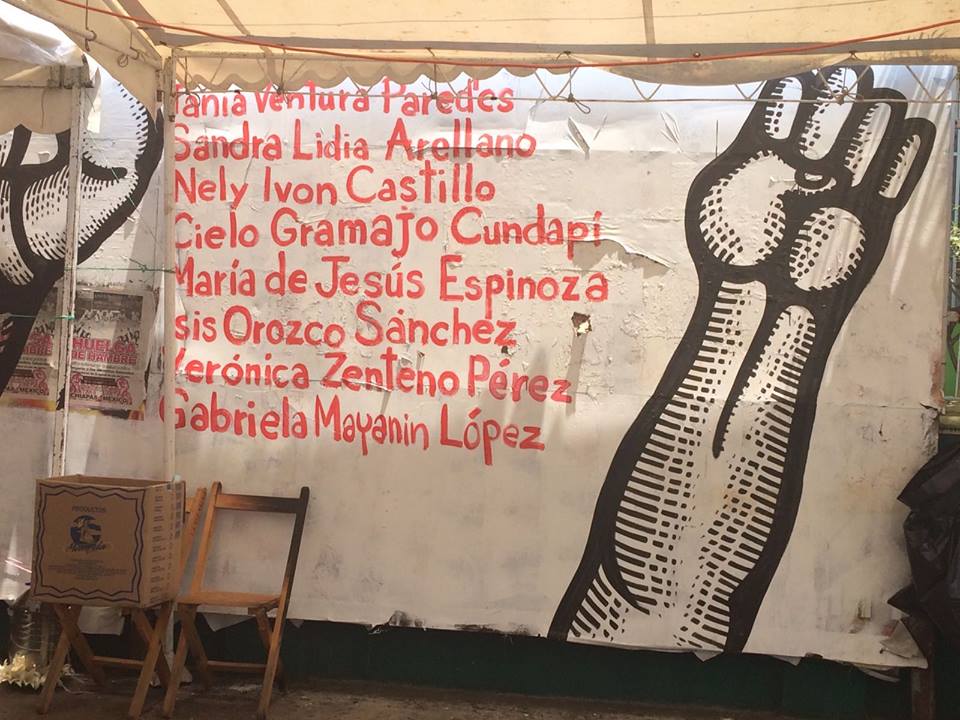 Tania Ventura Paredes
Sandra Lidia Arellano
Nely Ivon Castillo
Cielo Gramajo Cundapí
María de Jesús Espinoza
sis Orozco Sánchez
Verónica Zenteno Pérez
Gabriela Mayanin López
HUELGA
DE HAMBRE
CHIAPAS MEXICO
PRODUCTOS